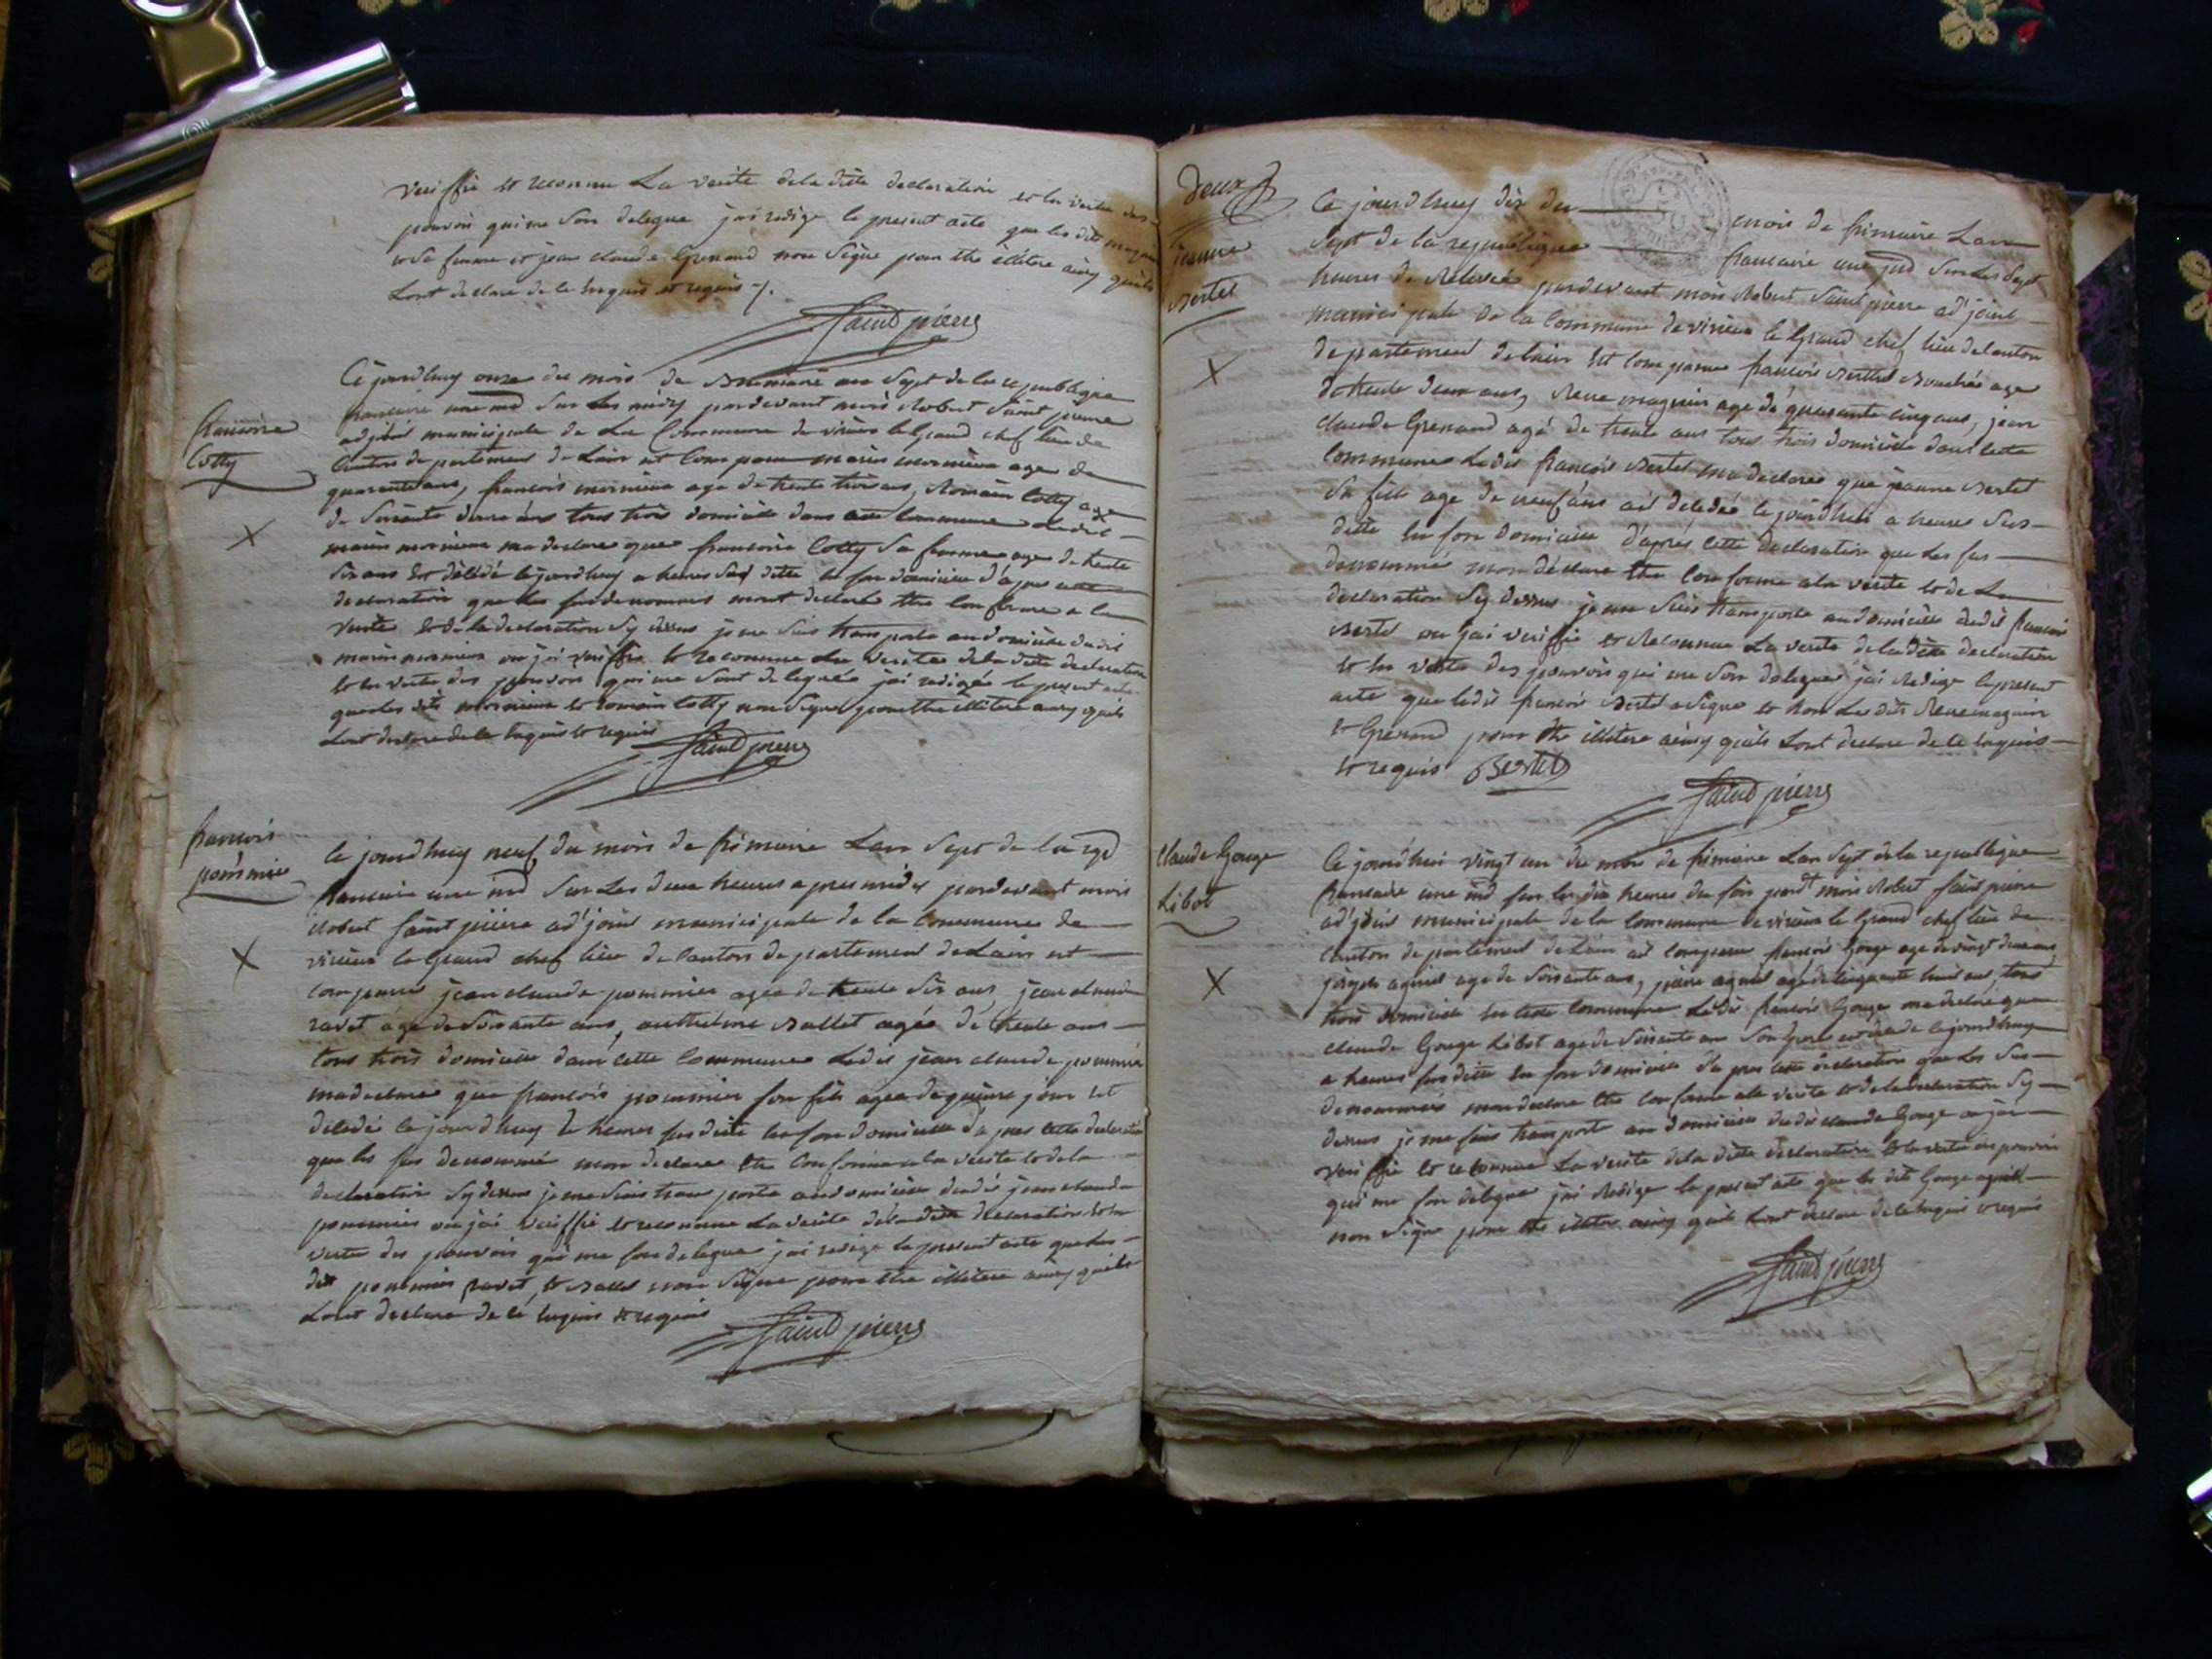 veriffié et reconnu La verité dela ditte declaration et en vertu des
pouvoir qui me son delegue jai redigé le present acte que les dits magnin
et Sa femme et jean claude Grenand non Signe pour être illitere ainsy quils
Lont declare de ce enquis et requis /.
Saint pierre
francoise
Cotty
Cejourdhuy onze du mois de Brumaire an Sept de la republique
francaise une ind Sur Les midy pardevant mois Robert Saint pierre
adjoint municipale de La Commune de virieu le Grand chef lieu de
Canton departement de Lain est Comparu marin mornieux age de
quarante ans, francois mornieux age de trente trois ans, Romain Cotty age
de Soixante douze ans tous trois domicilié dans cette Commune Ledit
marin mornieux ma declaré que francoise Cotty Sa femme age de trente
Six ans Est décédé cejourdhuy a heures Sus ditte en son domicile d'apres cette
declaration que Les susdenommés mont declaré être Conforme a la
verité et de la declaration Sy dessus je me Suis transporté au domicile dudit
marin mornieux ou jai veriffié et reconnue La verité dela ditte declaration
et en vertu des pouvoirs qui me Sont delegués jai redigés le present acte
que les dits mornieux et romain Cotty non Signe pour être illitere ainsy quils
Lont declare de ce enquis et requis
Saint pierre
francois
pommier
Ce jourdhuy neuf du mois de frimaire Lan Sept de la rep
francaise une ind Sur Les deux heures apres midy pardevant mois
Robert Saint pierre ad'joint municipale de la Commune de
virieux le Grand chef lieu de Canton departement de Lain est
Comparu jean claude pommier agée de trente Six ans, jean claude
ravet age de Soixante ans, anthelme Ballet agée de trente ans
tous trois domicilié dans cette Commune Ledit jean claude pommier
ma declaré que francois pommier son fils agée de quinze jour est
décédé ce jourdhuy a heures susditte en son domicille d'apres cette declaration
que les sus denommé mon declaré être Conforme a la verité et de la
declaration Sy dessus je me Suis transporté au domicile dudit jean claude
pommier ou jai veriffié et reconnue La verité dela ditte declaration et en
vertu des pouvoirs qui me son delegue jai redigé le present acte que les
dits pommier ravet, et Ballet non Signe pour être illitere ainsy quils
Lont declare de ce enquis et requis
Saint pierre
Deux
jeanne
Bertet
Ce jourdhuy dix du mois de frimaire Lan
Sept de la republique francaise une ind Sur Les Sept
heures de Relevée pardevant mois Robert Saint pierre ad'joint
municipale de la Commune de virieux le Grand chef lieu de Canton
departement de lain Est Comparue francois Bertet age
de trente deux ans, Rene magnin age de quarante cinq ans, jean
claude Grenand agé de trente ans tous trois domicilié dans cette
Commune Ledit francois Bertet ma declaree que jeanne Bertet
Sa fille age de neuf ans est decedée ce jourdhui a heures Sus
ditte en son domicile d'apres cette declaration que Les sus
denommé mon déclaré être Conforme a la verité et de La
declaration Sy dessus je me Suis transporté au domicille dudit francois
Bertet ou jai veriffié et Reconnue La verité de la ditte declaration
et en vertu des pouvoirs qui me son delegué jai Redige le present
acte que ledit francois Bertet a Signe et non Les dits Rene magnin
et Grenand pour être illitere ainsy quils Lont declare de ce enquis
et requis Bertet
Saint pierre
Claude Gouge
Libot
Ce jourdhui vingt un du mois de frimaire Lan Sept de la republique
francaise une ind sur les dix heures du soir pardt mois Robert saint pierre
ad'joint municipale de la Commune de virieux le Grand chef lieu de
Canton departement de Lain est Comparu francois Gouge age de vingt deux ans
joseph age de Soixante ans, pierre age de cinquante huit ans, tous
trois domicilié en cette Commune Ledit francois Gouge ma declaré que
claude Gouge Libot age de Soixante ans Son pere est decede cejourdhuy
a heures sus ditte en son domicile d'apres cette declaration que Les Sus
denommés mon declaré être Conforme a la verité et de la declaration Sy
dessus je me suis transporté au domicile dudit claude Gouge ou jai
veriffié et reconnue La verité dela ditte declaration Et la vertu des pouvoirs
qui me son delegue jai Redige le present acte que les dits Gouge
non Signe pour être illitere ainsy quils Lont declare de ce enquis et requis
Saint pierre